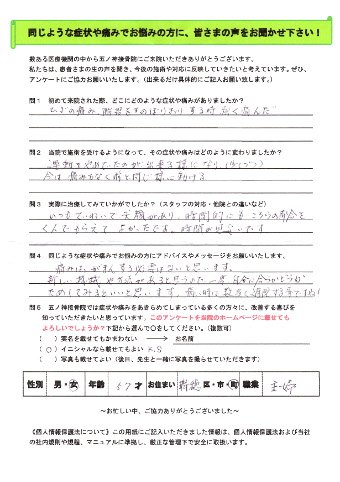 同じような症状や痛みでお悩みの方に、皆さまの声をお聞かせ下さい！
数ある医療機関の中から五ノ神接骨院にご来院いただきありがとうございます。
私たちは、患者さまの生の声を聞き、今後の施術や対応に反映していきたいと考えています。ぜひ、
アンケートにご協力お願いいたします。（出来るだけ具体的にご記入お願い致します。）
問１　初めて来院された際、どこにどのような症状や痛みがありましたか？
ひざの痛み、階段をのぼりおりする時
問２　当院で施術を受けるようになって、その症状や痛みはどのように変わりましたか？
運動をやめてたのが出来る様になり、
今は痛みもなく前と同じ様に動ける
問３　実際に治療してみていかがでしたか？（スタッフの対応・他院との違いなど）
いつもていねいで笑顔があり、時間的にもこちらの都合を
くんでもらえてよかったです。
問４　同じような症状や痛みでお悩みの方にアドバイスやメッセージをお願いいたします。
痛みはがまんする必要はないと思います。
ためしてみるといいと思います。
問５　五ノ神接骨院では症状や痛みをあきらめてしまっている多くの方々に、改善する喜びを
知っていただきたいと思っています。このアンケートを当院のホームページに載せても
よろしいでしょうか？下記から選んで〇をしてください。（複数可）
（　）実名を載せてもかまわない　→　お名前
（〇）イニシャルなら載せてもよい　K.S
（　）写真も載せてよい（後日、先生と一緒に写真を撮らせていただきます）
性別　男・女　年齢　67才　お住まい　瑞穂　区・市・町　職業　主婦
～お忙しい中、ご協力ありがとうございました～
《個人情報保護法について》この用紙にご記入いただきました情報は、個人情報保護法および当社
の社内規則や規程、マニュアルに準拠し、厳正な管理下で安全に取扱います。